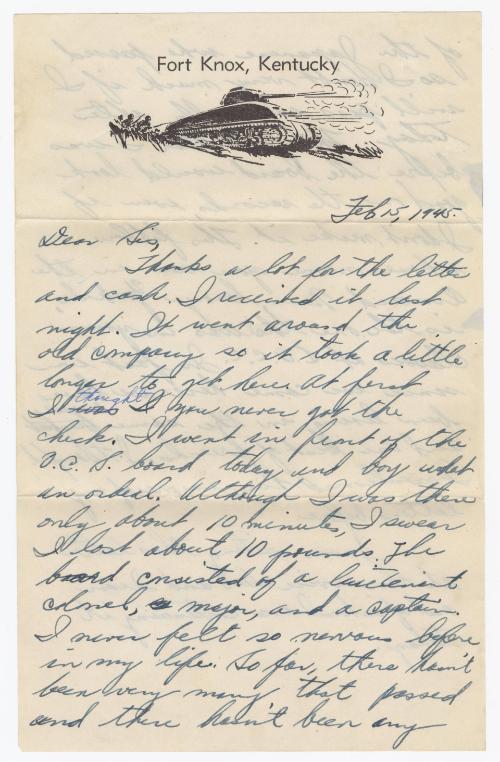 Fort Knox, Kentucky
Feb 15, 1945.
Dear Sis,
Thanks a lot for the letter
and cash. I received it last
night. It went around the
old company so it took a little
longer to get here. At first
I was thought I you never got the
check. I went in front of the
O.C.S. board today and boy what
an ordeal. Although I was there
only about 10 minutes, I swear
I lost about 10 pounds. The
board consisted of a lieutenant
colonel, a major, and a captain.
I never felt so nervous before
in my life. So far, there hasn't
been very many that passed
and there hasn't been any